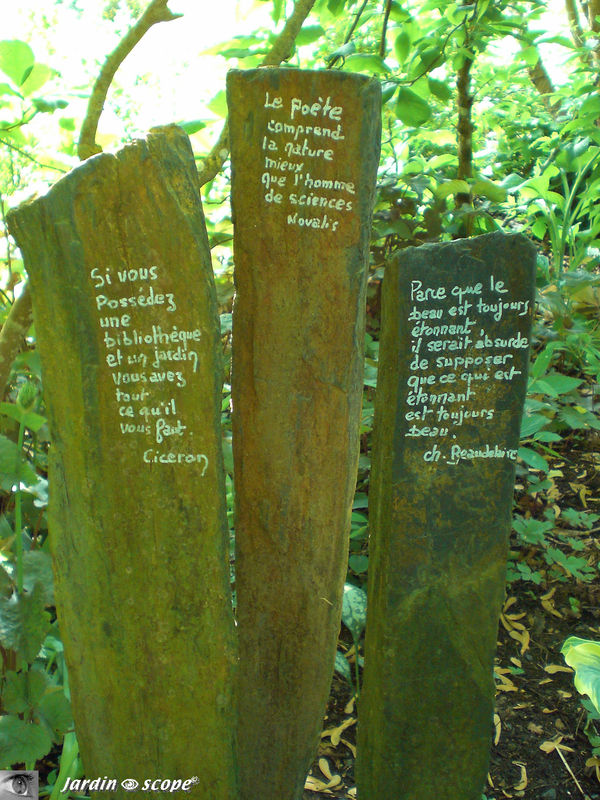 Si vous
Possédez
une
bibliothèque
et un jardin
Vous avez
tout
ce qu'il
vous faut.
Ciceron
Le poète
comprend
la nature
mieux
que l'homme
de sciences
Novalis
Parce que le
beau est toujours
étonnant,
il serait absurde
de supposer
que ce qui est
étonnant
est toujours
beau.
ch. Beaudelaire
Jardin scope©